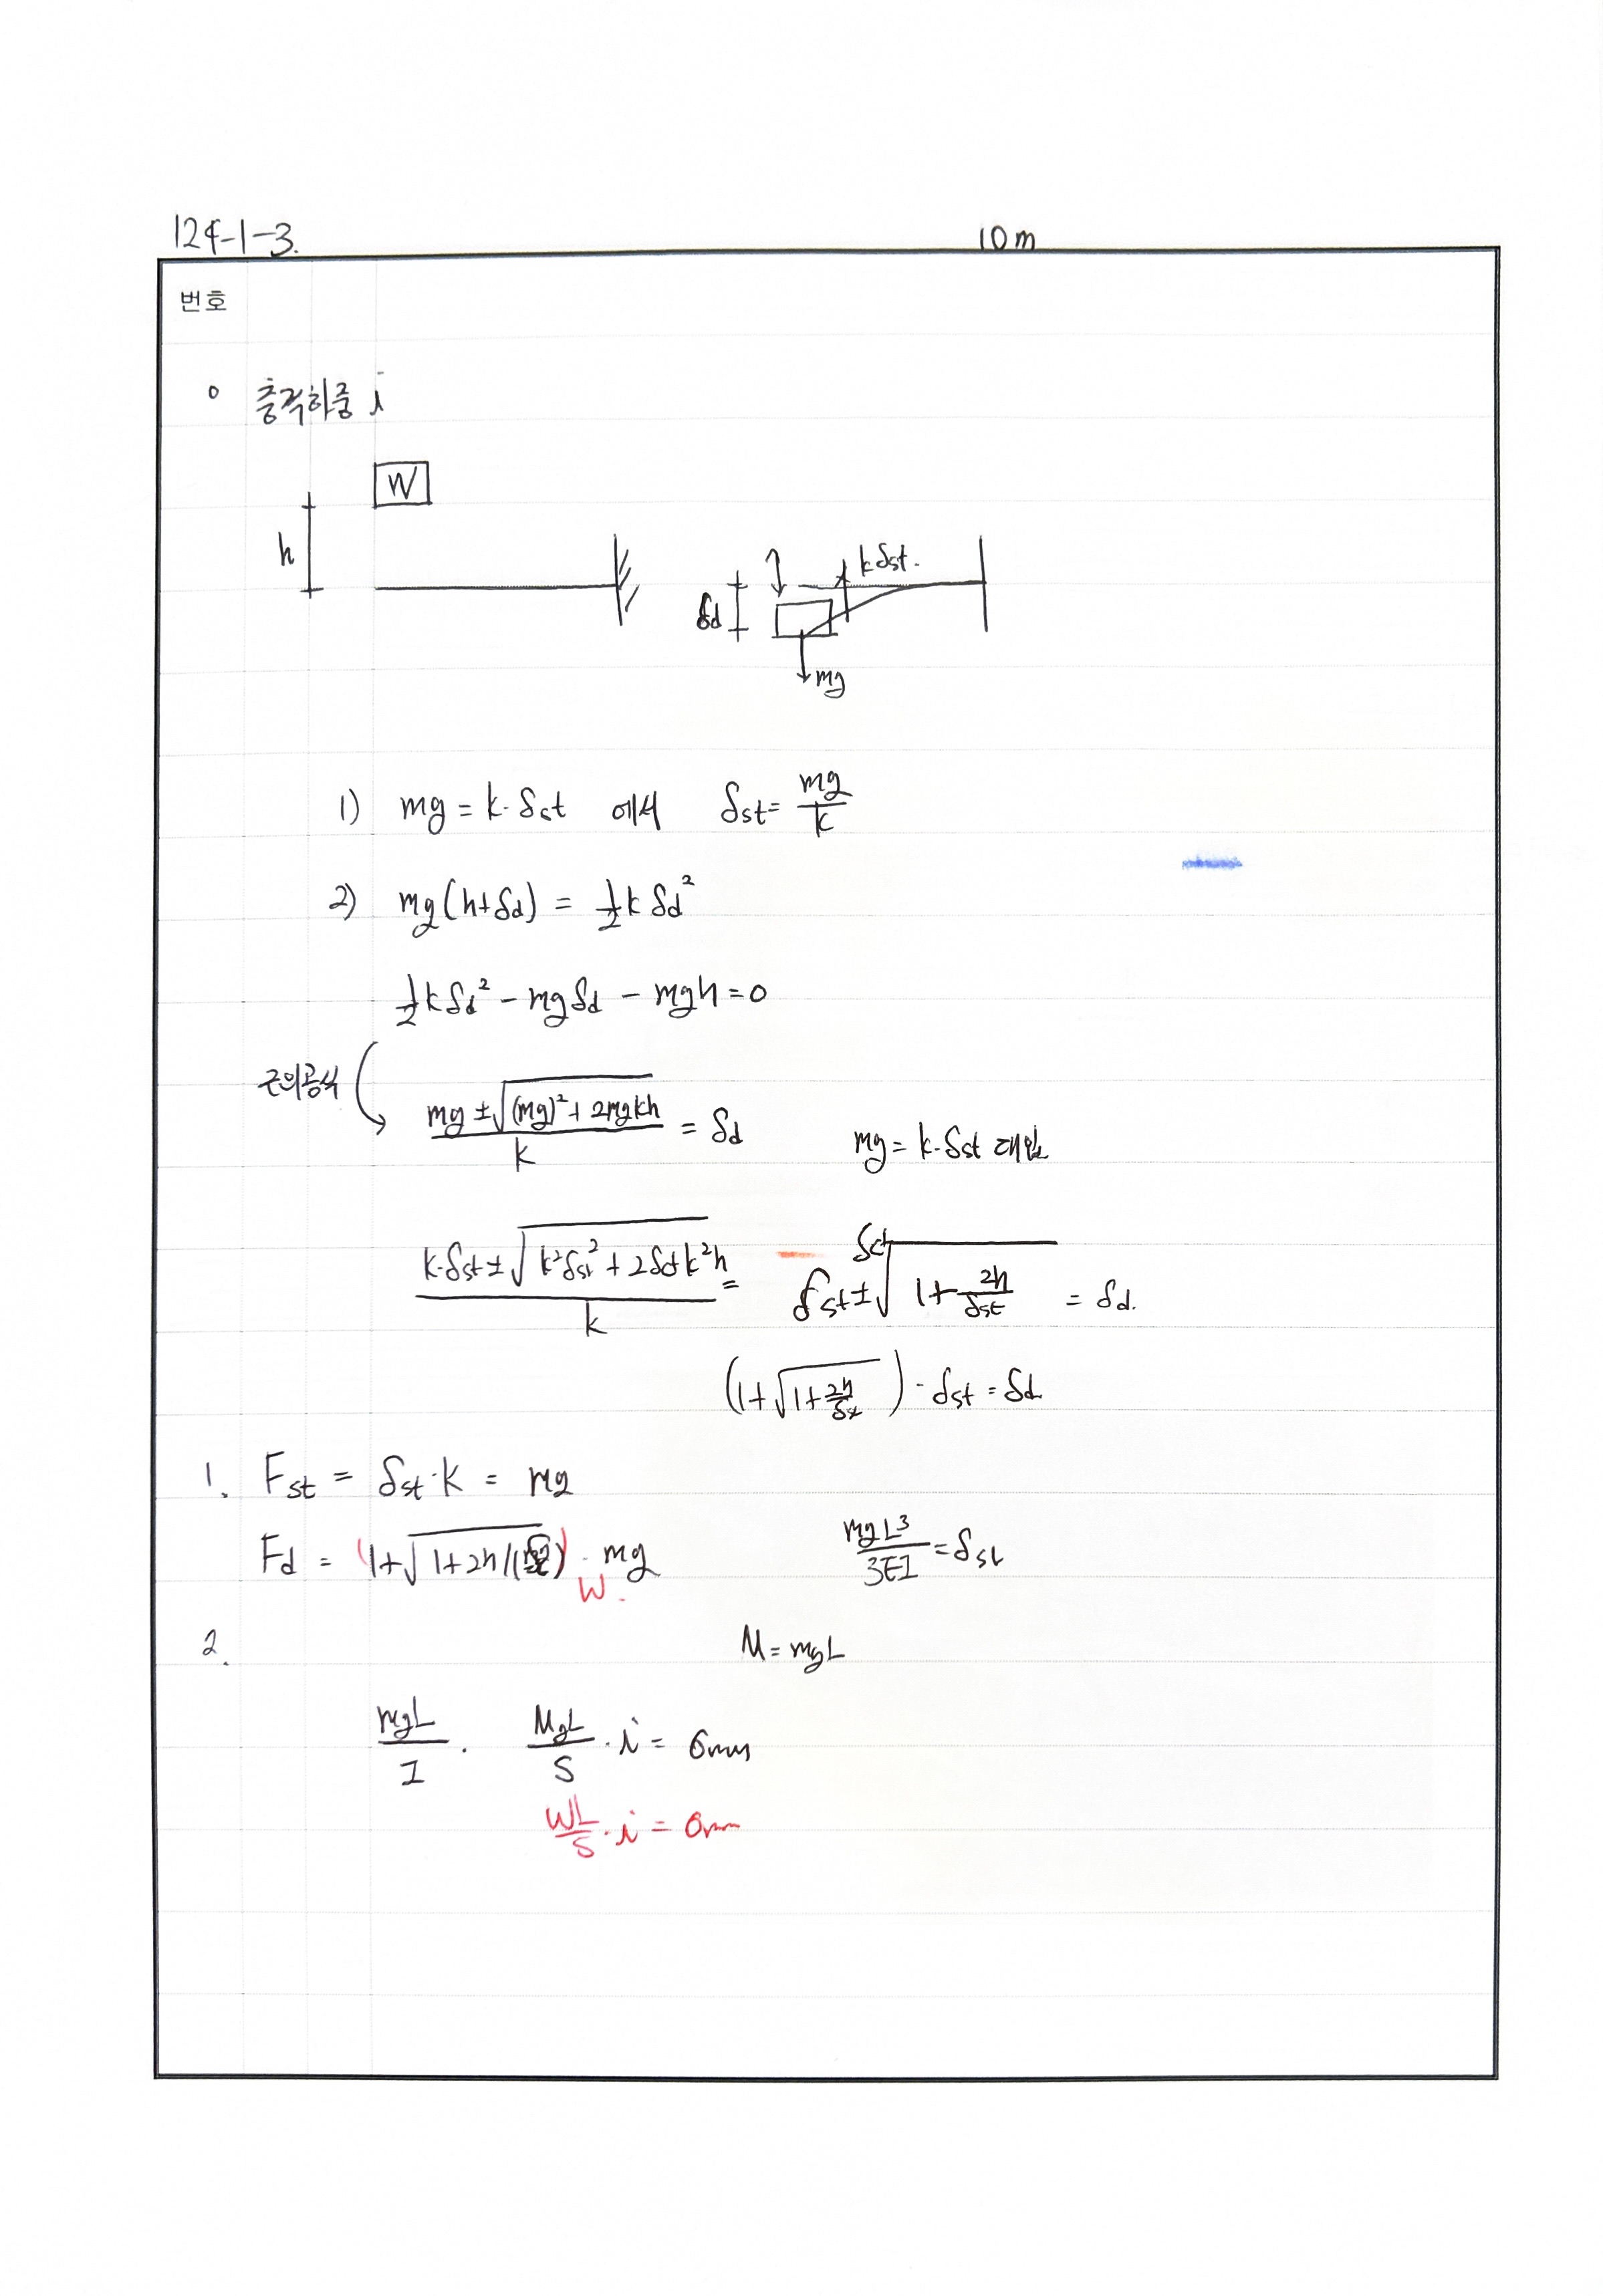 124-1-3. 10m
번호
○ 충격하중 i
W
h
δd
kδst.
mg
1) mg = k·δst 에서 δst = mg/k
2) mg(h+δd) = 1/2 k δd²
1/2 kδd² - mgδd - mgh = 0
근의공식
(mg ± √((mg)² + 2mgkh))/k = δd mg = k·δst 대입
(k·δst ± √(k²δst² + 2δst k²h))/k = δst ± δst√(1 + 2h/δst) = δd.
(1+√(1+2h/δst))·δst = δd
1. Fst = δst·k = mg
Fd = (1+√(1+2h/ )·mg mgL³/3EI = δst
W.
2. M = mgL
mgL/I. MgL/S · i = σmax
WL/S · i = σmax